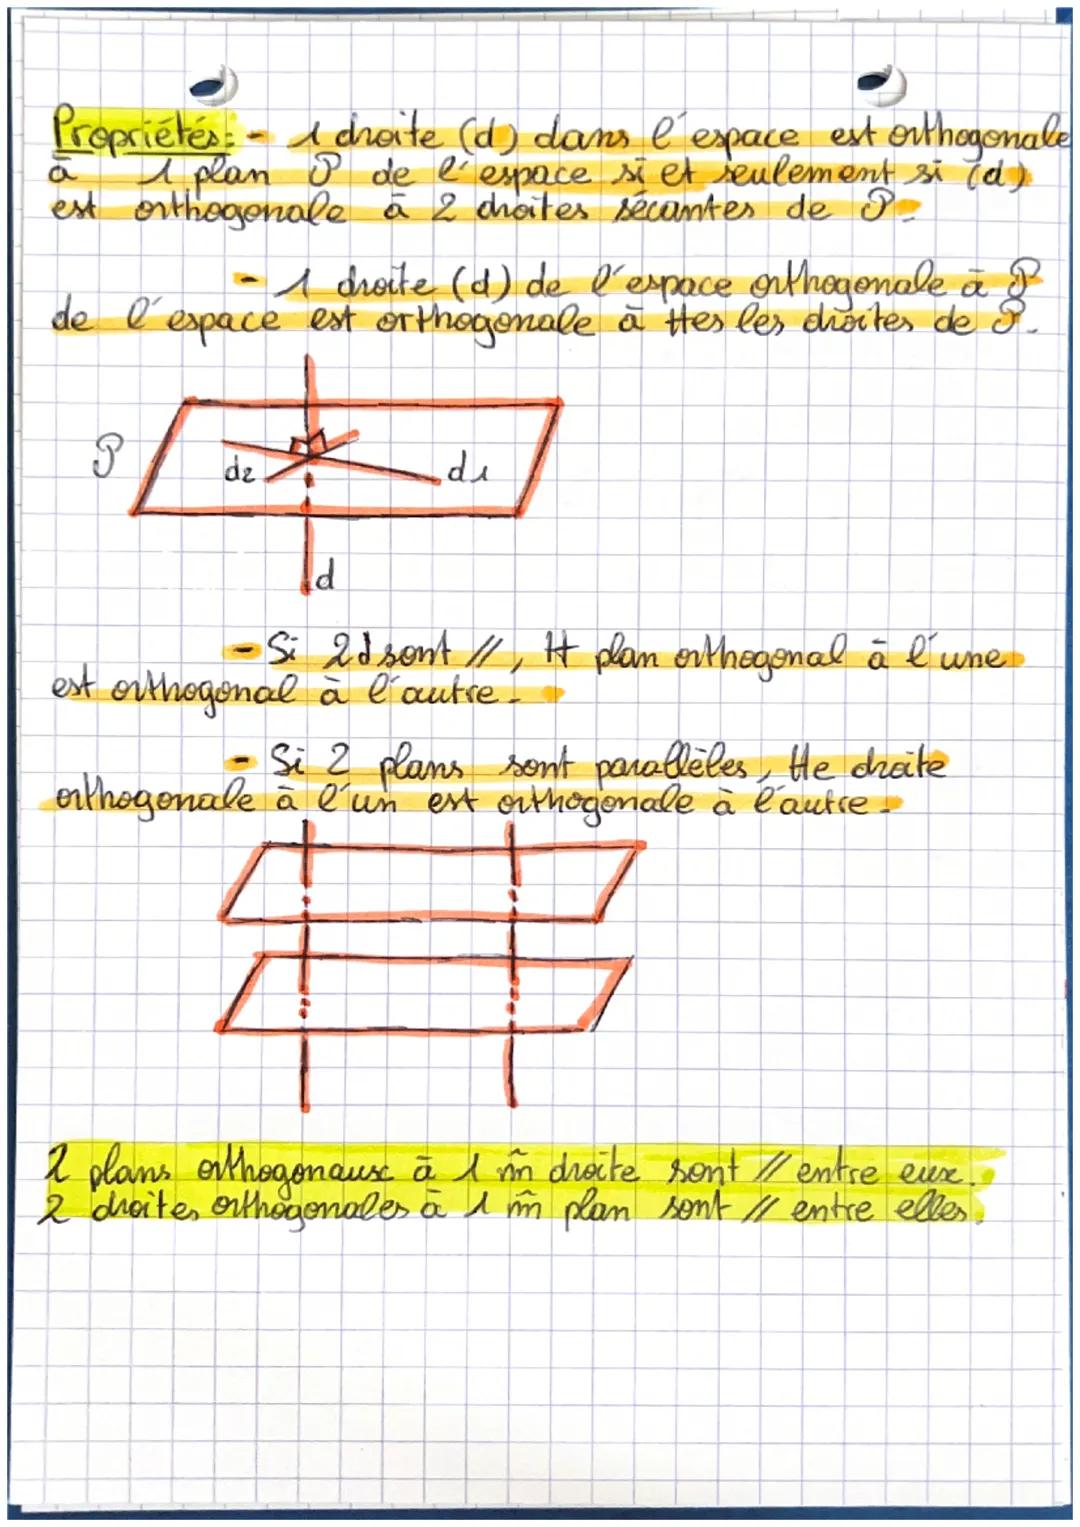 Propriétés: - 1 droite (d) dans l'espace est orthogonale
à 1 plan P de l'espace si et seulement si (d)
est orthogonale à 2 droites sécantes de P.
- 1 droite (d) de l'espace orthogonale à P
de l'espace est orthogonale à ttes les droites de P.
P
d2
d1
d
- Si 2 d sont //, tt plan orthogonal à l'une
est orthogonal à l'autre.
- Si 2 plans sont parallèles, tte droite
orthogonale à l'un est orthogonale à l'autre.
2 plans orthogonaux à 1 m̂ droite sont // entre eux.
2 droites orthogonales à 1 m̂ plan sont // entre elles.